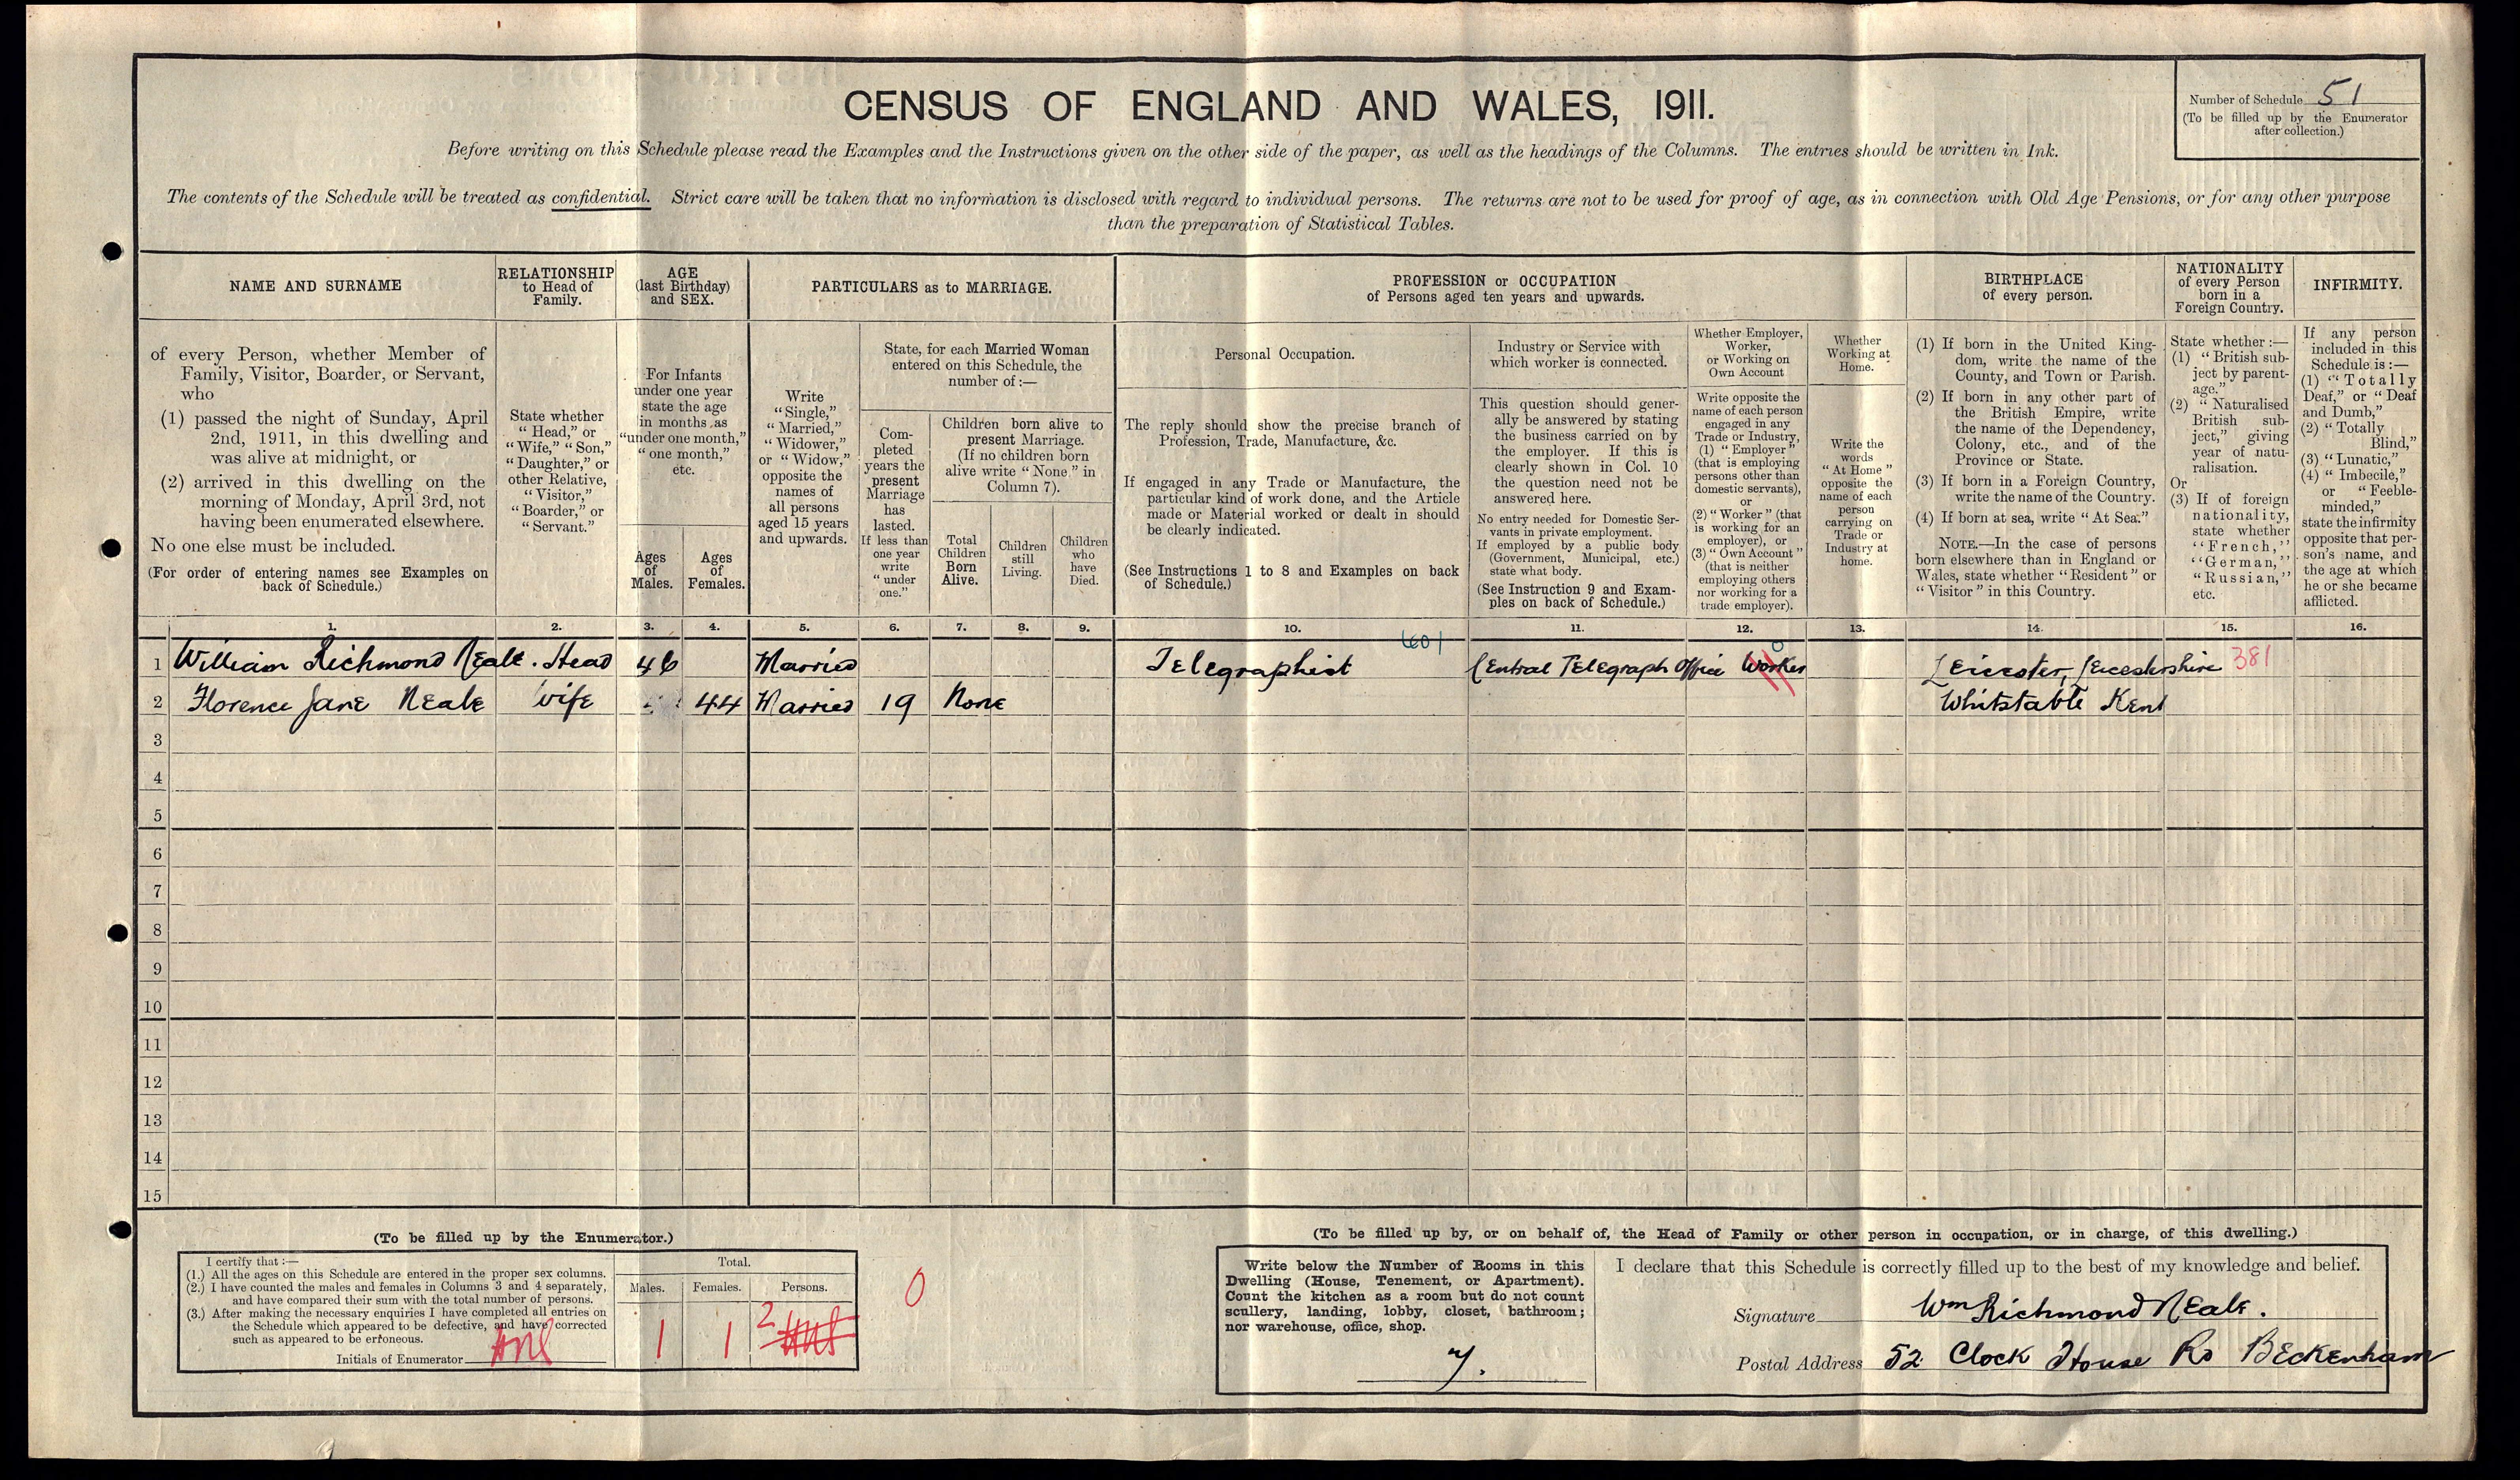 CENSUS OF ENGLAND AND WALES, 1911.
Number of Schedule 51
(To be filled up by the Enumerator
after collection.)
Before writing on this Schedule please read the Examples and the Instructions given on the other side of the paper, as well as the headings of the Columns. The entries should be written in Ink.
The contents of the Schedule will be treated as confidential. Strict care will be taken that no information is disclosed with regard to individual persons. The returns are not to be used for proof of age, as in connection with Old Age Pensions, or for any other purpose
than the preparation of Statistical Tables.
NAME AND SURNAME
of every Person, whether Member of
Family, Visitor, Boarder, or Servant,
who
(1) passed the night of Sunday, April
2nd, 1911, in this dwelling and
was alive at midnight, or
(2) arrived in this dwelling on the
morning of Monday, April 3rd, not
having been enumerated elsewhere.
No one else must be included.
(For order of entering names see Examples on
back of Schedule.)
RELATIONSHIP
to Head of
Family.
State whether
“Head,” or
“Wife,” “Son,”
“Daughter,” or
other Relative,
“Visitor,”
“Boarder,” or
“Servant.”
AGE
(last Birthday)
and SEX.
For Infants
under one year
state the age
in months as
“under one month,”
“one month,”
etc.
Ages
of
Males.
Ages
of
Females.
PARTICULARS as to MARRIAGE.
Write
“Single,”
“Married,”
“Widower,”
or “Widow,”
opposite the
names of
all persons
aged 15 years
and upwards.
State, for each Married Woman
entered on this Schedule, the
number of:—
Com-
pleted
years the
present
Marriage
has
lasted.
If less than
one year
write
“under
one.”
Children born alive to
present Marriage.
(If no children born
alive write “None” in
Column 7).
Total
Children
Born
Alive.
Children
still
Living.
Children
who
have
Died.
PROFESSION or OCCUPATION
of Persons aged ten years and upwards.
Personal Occupation.
The reply should show the precise branch of
Profession, Trade, Manufacture, &c.
If engaged in any Trade or Manufacture, the
particular kind of work done, and the Article
made or Material worked or dealt in should
be clearly indicated.
(See Instructions 1 to 8 and Examples on back
of Schedule.)
Industry or Service with
which worker is connected.
This question should gener-
ally be answered by stating
the business carried on by
the employer. If this is
clearly shown in Col. 10
the question need not be
answered here.
No entry needed for Domestic Ser-
vants in private employment.
If employed by a public body
(Government, Municipal, etc.)
state what body.
(See Instruction 9 and Exam-
ples on back of Schedule.)
Whether Employer,
Worker,
or Working on
Own Account
Write opposite the
name of each person
engaged in any
Trade or Industry,
(1) “Employer”
(that is employing
persons other than
domestic servants),
or
(2) “Worker” (that
is working for an
employer), or
(3) “Own Account”
(that is neither
employing others
nor working for a
trade employer).
Whether
Working at
Home.
Write the
words
“At Home”
opposite the
name of each
person
carrying on
Trade or
Industry at
home.
BIRTHPLACE
of every person.
(1) If born in the United King-
dom, write the name of the
County, and Town or Parish.
(2) If born in any other part of
the British Empire, write
the name of the Dependency,
Colony, etc., and of the
Province or State.
(3) If born in a Foreign Country,
write the name of the Country.
(4) If born at sea, write “At Sea.”
NOTE.—In the case of persons
born elsewhere than in England or
Wales, state whether “Resident” or
“Visitor” in this Country.
NATIONALITY
of every Person
born in a
Foreign Country.
State whether:—
(1) “British sub-
ject by parent-
age.”
(2) “Naturalised
British sub-
ject,” giving
year of natu-
ralisation.
Or
(3) If of foreign
nationality,
state whether
“French,”
“German,”
“Russian,”
etc.
INFIRMITY.
If any person
included in this
Schedule is:—
(1) “Totally
Deaf,” or “Deaf
and Dumb,”
(2) “Totally
Blind,”
(3) “Lunatic,”
(4) “Imbecile,”
or “Feeble-
minded,”
state the infirmity
opposite that per-
son's name, and
the age at which
he or she became
afflicted.
1. 2. 3. 4. 5. 6. 7. 8. 9. 10. 11. 12. 13. 14. 15. 16.
601 0
1 William Richmond Neale. Head 46 Married Telegraphist Central Telegraph Office Worker Leicester, Leicestershire 381
2 Florence Jane Neale Wife 44 Married 19 None Whitstable Kent
3
4
5
6
7
8
9
10
11
12
13
14
15
(To be filled up by the Enumerator.)
I certify that:—
(1.) All the ages on this Schedule are entered in the proper sex columns.
(2.) I have counted the males and females in Columns 3 and 4 separately,
and have compared their sum with the total number of persons.
(3.) After making the necessary enquiries I have completed all entries on
the Schedule which appeared to be defective, and have corrected
such as appeared to be erroneous.
Initials of Enumerator
Total.
Males. Females. Persons.
1 1 2
0
(To be filled up by, or on behalf of, the Head of Family or other person in occupation, or in charge, of this dwelling.)
Write below the Number of Rooms in this
Dwelling (House, Tenement, or Apartment).
Count the kitchen as a room but do not count
scullery, landing, lobby, closet, bathroom;
nor warehouse, office, shop.
7.
I declare that this Schedule is correctly filled up to the best of my knowledge and belief.
Signature Wm Richmond Neale.
Postal Address 52 Clock House Rd Beckenham